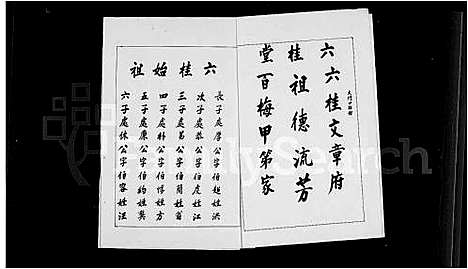 六六桂文章府
桂祖德流芳
堂百梅甲第家
六桂始祖
長子處厚公字伯姓洪
次子處恭公字伯虔姓江
三子處易公字伯簡姓翁
四子處朴公字伯惇姓方
五子處廉公字伯約姓龔
六子處休公字伯容姓汪
FamilySearch